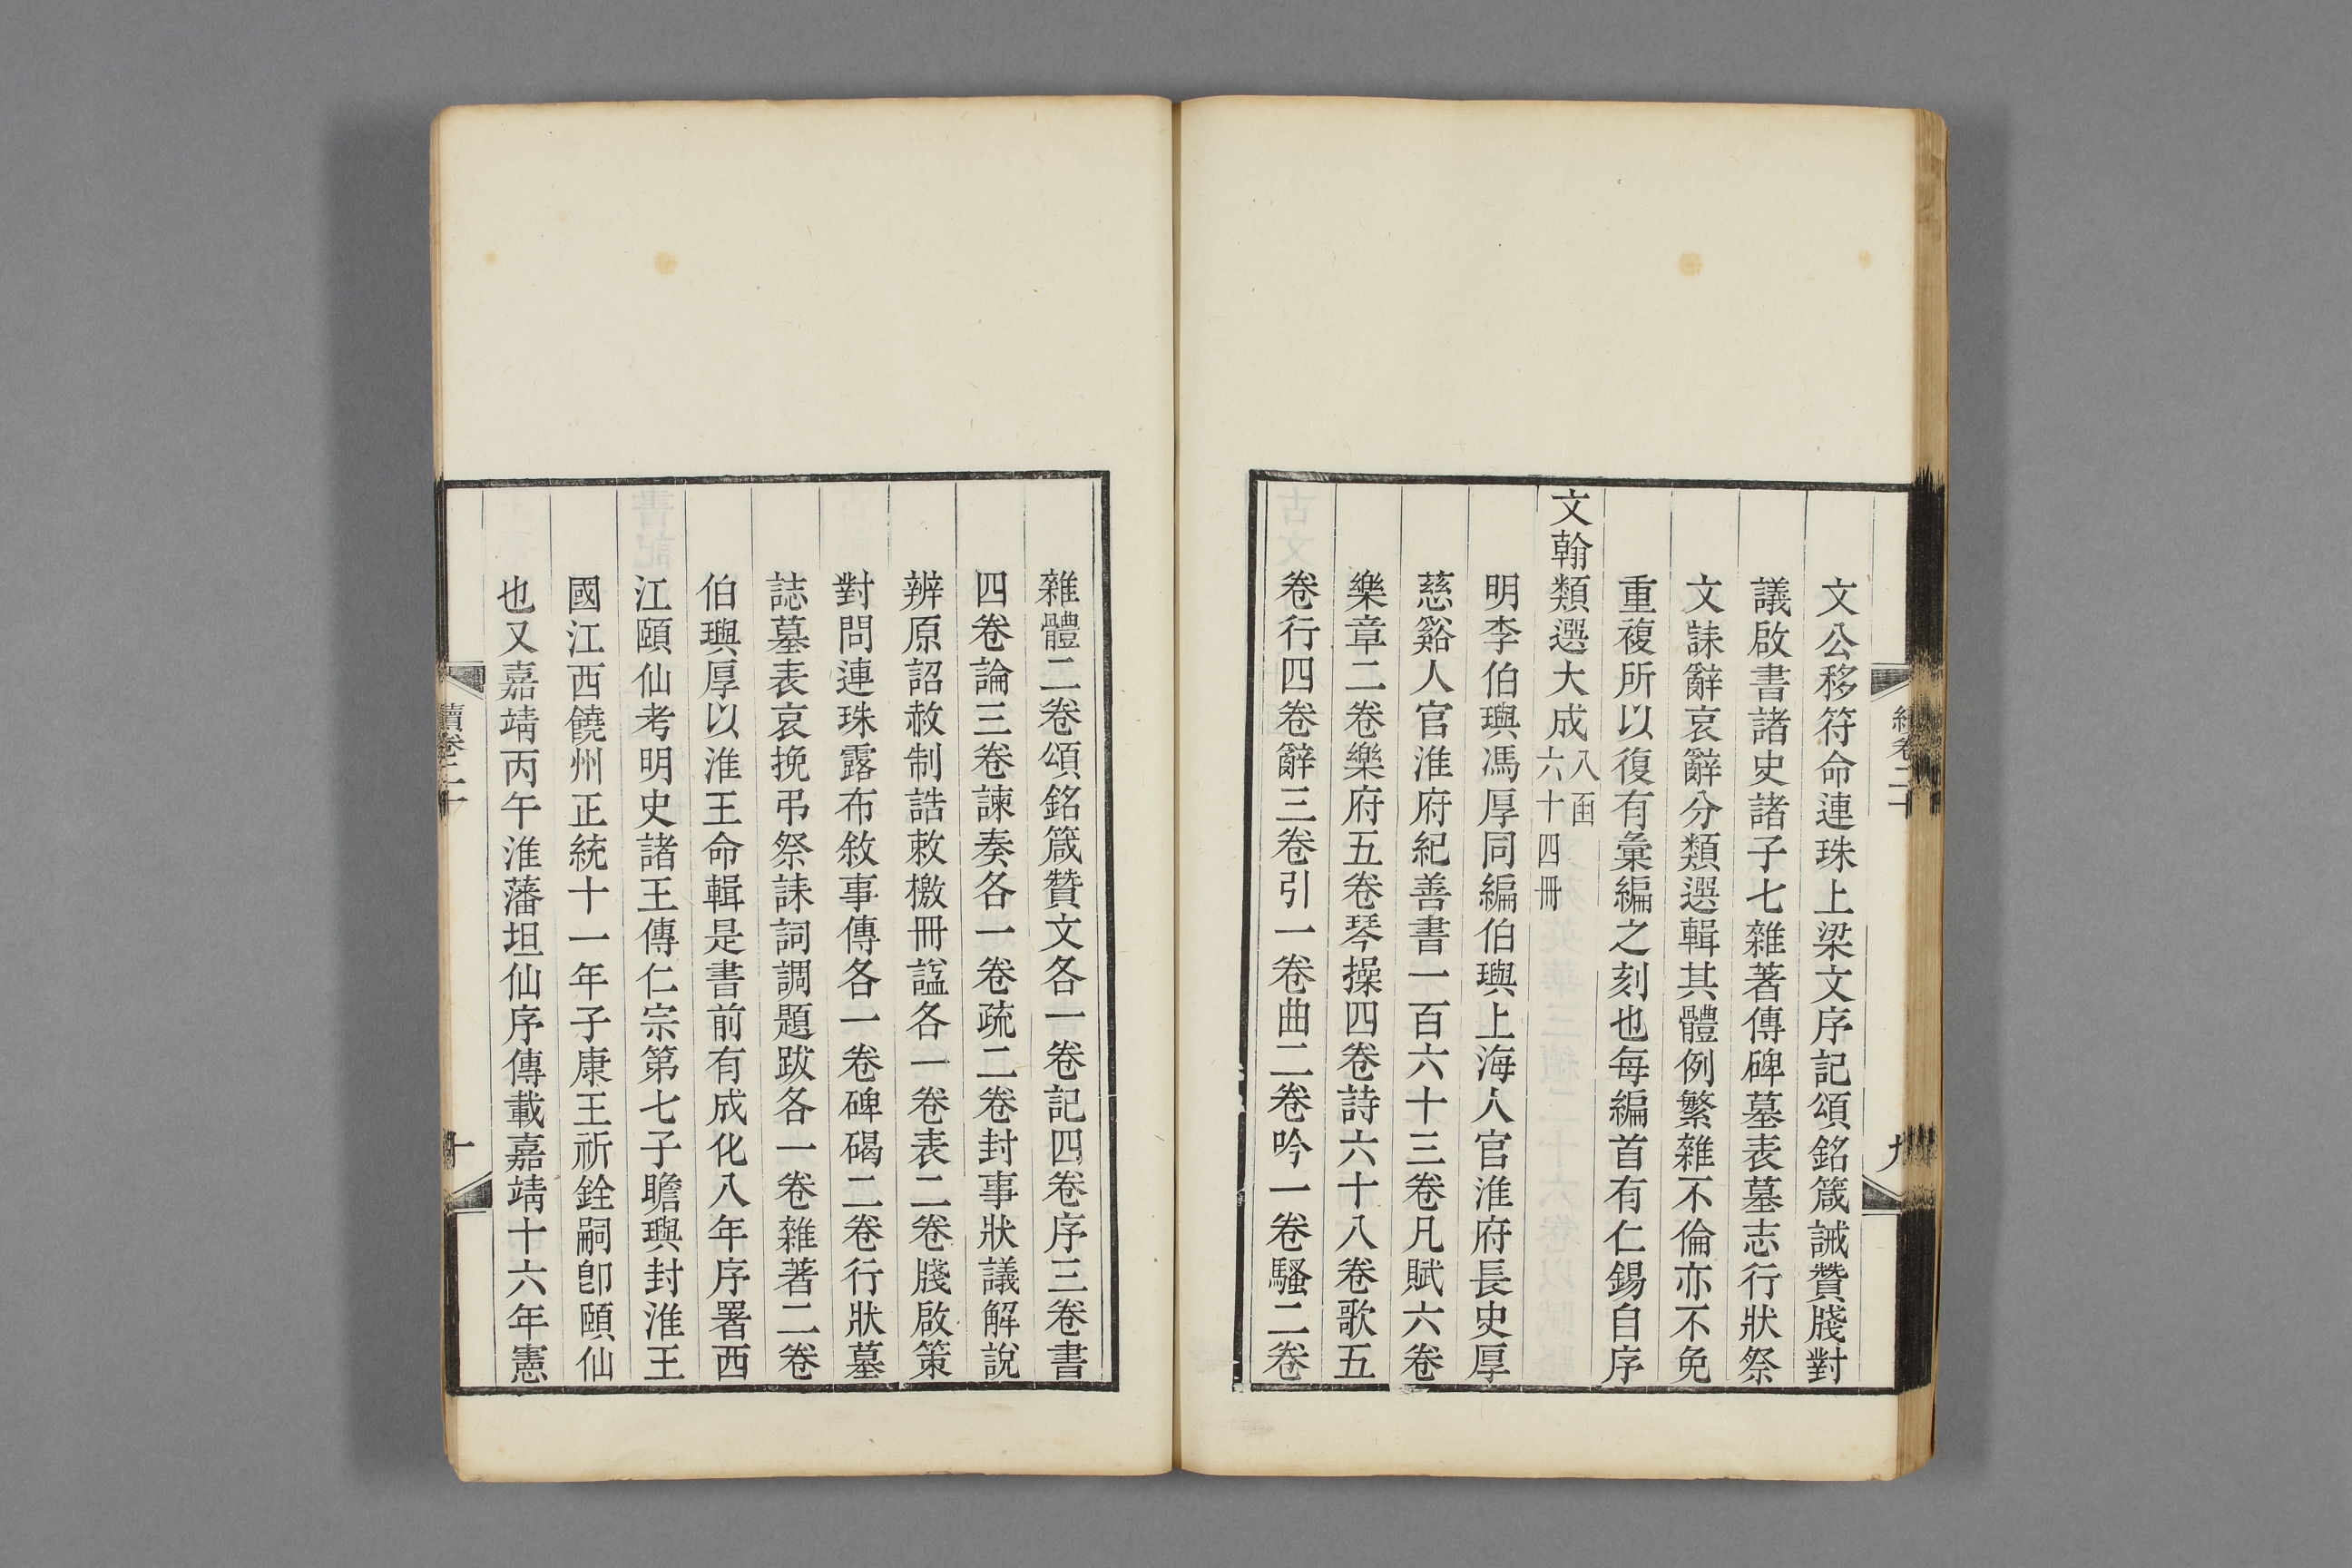 文公移符命連珠上梁文序記頌銘箴誡贊牋對
議啟書諸史諸子七雜著傳碑墓表墓志行狀祭
文誄辭哀辭分類選輯其體例繁雜不倫亦不免
重複所以復有彙編之刻也每編首有仁錫自序
文翰類選大成八函六十四冊
明李伯璵馮厚同編伯璵上海人官淮府長史厚
慈谿人官淮府紀善書一百六十三卷凡賦六卷
樂章二卷樂府五卷琴操四卷詩六十八卷歌五
卷行四卷辭三卷引一卷曲二卷吟一卷騷二卷
續卷二十
九
雜體二卷頌銘箴贊文各一卷記四卷序三卷書
四卷論三卷諫奏各一卷疏二卷封事狀議解說
辨原詔赦制誥敕檄冊諡各一卷表二卷牋啟策
對問連珠露布敘事傳各一卷碑碣二卷行狀墓
誌墓表哀挽弔祭誄詞調題跋各一卷雜著二卷
伯璵厚以淮王命輯是書前有成化八年序署西
江頤仙考明史諸王傳仁宗第七子瞻璵封淮王
國江西饒州正統十一年子康王祈銓嗣卽頤仙
也又嘉靖丙午淮藩坦仙序傳載嘉靖十六年憲
續卷二十
十